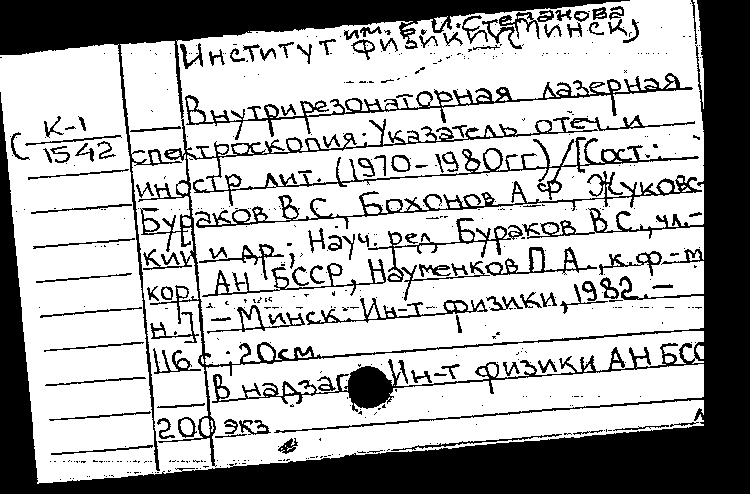 им. Б. И. Степанова
Институт физики (Минск)
Внутрирезонаторная лазерная
К-1
1542
спектроскопия: Указатель отеч. и
иностр. лит. (1970-1980гг) / [Сост.:
Бураков В.С., Бохонов А.Ф., Жуковс-
кий и др.; Науч. ред. Бураков В.С., чл.-
кор. АН БССР, Науменков П.А., к.ф.-м
н.] - Минск: Ин-т физики, 1982. -
116 с.; 20см.
В надзаг. Ин-т физики АН БСС
200 экз.